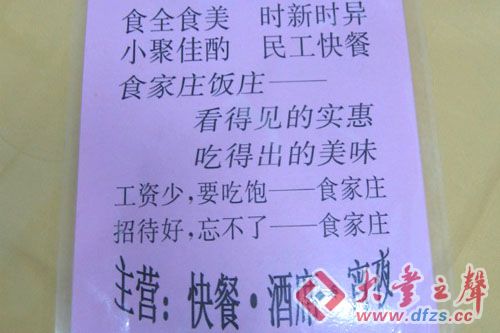 食全食美　时新时异
小聚佳酌　民工快餐
食家庄饭庄——
看得见的实惠
吃得出的美味
工资少，要吃饱——食家庄
招待好，忘不了——食家庄
主营：快餐·酒席 宵夜
大学之聲
www.dfzs.cc